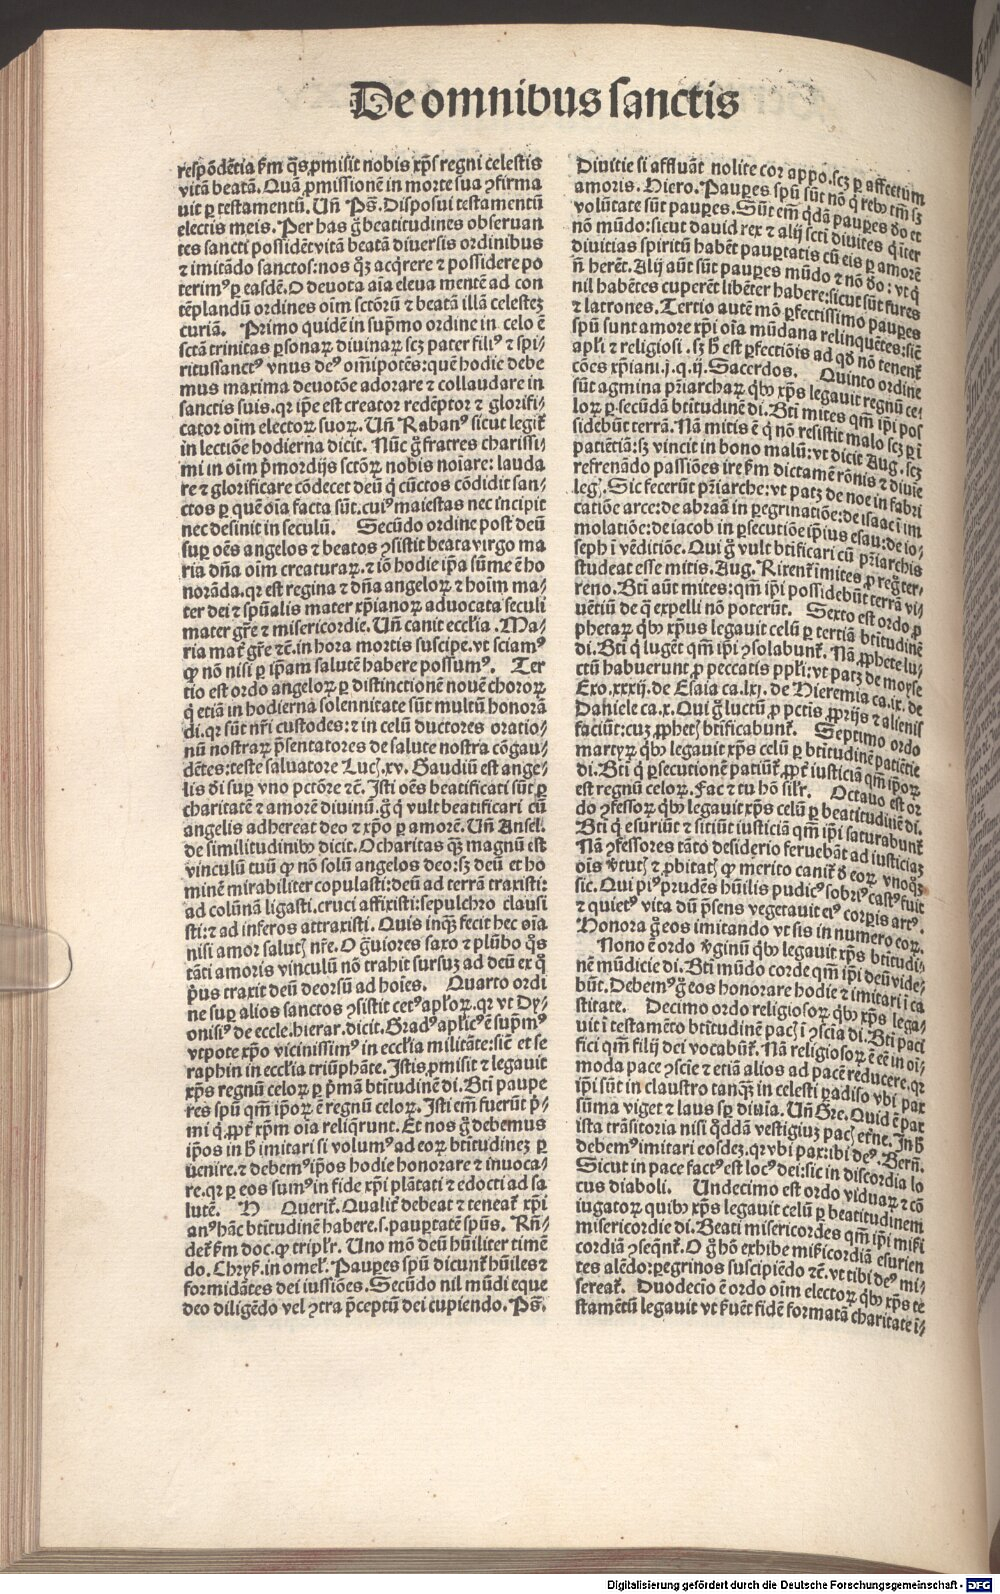 De omnibus sanctis
respõdẽtia ẜm q̃s ꝓmisit nobis xp̃s regni celestis
vitã beatã. Quã ꝓmissionẽ in morte sua ꝯfirma
uit ꝑ testamentũ. Uñ Ps̃. Disposui testamentũ
electis meis. Per has g̃ beatitudines obseruan
tes sancti possidẽt vitã beatã diuersis ordinibus
⁊ imitãdo sanctos: nos qꝫ acq̃rere ⁊ possidere po
terimꝰ ꝑ easdẽ. O deuota aĩa eleua mentẽ ad con
tẽplandũ ordines oĩm sctõrũ ⁊ beatã illã celestez
curiã. Primo quidẽ in sup̃mo ordine in celo ẽ
sctã trinitas ꝑsonaꝝ diuinaꝝ scꝫ pater filiꝰ ⁊ spi⸗
ritussanctꝰ vnus deꝰ om̃ipotẽs: quẽ hodie debe
mus maxima deuotõe adorare ⁊ collaudare in
sanctis suis. qꝛ ip̃e est creator redẽptor ⁊ glorifi⸗
cator oĩm electoꝝ suoꝝ. Uñ Rabanꝰ sicut legit̃
in lectiõe hodierna dicit. Nũc g̃ fratres charissi⸗
mi in oĩm p̃mordijs sctõꝝ nobis noĩare: lauda
re ⁊ glorificare cõdecet deũ q̃ cũctos cõdidit san⸗
ctos ꝑ quẽ oĩa facta sũt. cuiꝰ maiestas nec incipit
nec desinit in seculũ. Secũdo ordine post deũ
suꝑ oẽs angelos ⁊ beatos ꝯsistit beata virgo ma
ria dña oĩm creaturaꝝ. ⁊ iõ hodie ip̃a sũme ẽ ho
norãda. qꝛ est regina ⁊ dña angeloꝝ ⁊ hoĩm ma⸗
ter dei ⁊ spũalis mater xp̃ianoꝝ aduocata seculi
mater gr̃e ⁊ misericordie. Uñ canit eccl̃ia. Ma⸗
ria mat̃ gr̃e ⁊c̃. in hora mortis suscipe. vt sciamꝰ
ꝙ nõ nisi ꝑ ip̃am salutẽ habere possumꝰ. Ter
tio est ordo angeloꝝ ꝑ distinctionẽ nouẽ choroꝝ
q̃ etiã in hodierna solennitate sũt multũ honorã
di. qꝛ sũt nr̃i custodes: ⁊ in celũ ductores oratio⸗
nũ nostraꝝ p̃sentatores de salute nostra cõgau⸗
dẽtes: teste saluatore Luc̃. xv. Gaudiũ est ange⸗
lis dĩ suꝑ vno pctõre ⁊c̃. Isti oẽs beatificati sũt ꝑ
charitatẽ ⁊ amorẽ diuinũ. g̃ q̃ vult beatificari cũ
angelis adhereat deo ⁊ xp̃o ꝑ amorẽ. Uñ Ansel.
de similitudinibꝰ dicit. O charitas qꝫ magnũ est
vinculũ tuũ ꝙ nõ solũ angelos deo: sꝫ deũ et ho
minẽ mirabiliter copulasti: deũ ad terrã traxisti:
ad colũnã ligasti. cruci affixisti: sepulchro clausi
sti: ⁊ ad inferos attraxisti. Quis inqꝫ fecit hec oĩa
nisi amor salut̃ nr̃e. O g̃uiores saxo ⁊ plũbo q̃s
tãti amoris vinculũ nõ trahit sursuꝫ ad deũ ex q̃
p̃us traxit deũ deorsũ ad hoĩes. Quarto ordi
ne suꝑ alios sanctos ꝯsistit cetꝰ apl̃oꝝ. qꝛ vt Dy⸗
onisiꝰ de eccle. hierar. dicit. Gradꝰ aplic̃ꝰ ẽ sup̃mꝰ
vtpote xp̃o vicinissimꝰ in eccl̃ia militãte: sic̃ et se
raphin in eccl̃ia triũphãte. Istis ꝓmisit ⁊ legauit
xp̃s regnũ celoꝝ ꝑ p̃mã btitudinẽ di. Bt̃i paupe
res spũ qm̃ ip̃oꝝ ẽ regnũ celoꝝ. Isti em̃ fuerũt p̃⸗
mi q̃ ꝓpt̃ xp̃m oĩa reliq̃runt. Et nos g̃ debemus
ip̃os in h̃ imitari si volumꝰ ad eoꝝ btitudineꝫ ꝑ
uenire. ⁊ debemꝰ ip̃os hodie honorare ⁊ inuoca⸗
re. qꝛ ꝑ eos sumꝰ in fide xp̃i plãtati ⁊ edocti ad sa
lutẽ. H Querit̃. Qualit̃ debeat ⁊ teneat̃ xp̃i
anꝰ hãc btitudinẽ habere. s. pauꝑtatẽ spũs. Rñ⸗
det̃ ẜm doc. ꝙ tripl̃r. Uno mõ deũ hũiliter timẽ
do. Chrys̃. in omel̃. Pauꝑes spũ dicunt̃ hũiles ⁊
formidãtes dei iussiões. Secũdo nil mũdi eque
deo diligẽdo vel ꝯtra p̃ceptũ dei cupiendo. Ps̃.
Diuitie si affluãt nolite cor appo. scꝫ ꝑ affectum
amoris. Hiero. Pauꝑes spũ sũt nõ q̃ rebꝰ tm̃ sꝫ
volũtate sũt pauꝑes. Sũt em̃ q̃dã pauꝑes deo et
nõ mũdo: sicut dauid rex ⁊ alij scti diuites q̃ iter
diuitias spiritũ habẽt pauꝑtatis cũ eis ꝑ amorẽ
ñ herẽt. Alij aũt sũt pauꝑes mũdo ⁊ nõ deo: vt q̃
nil habẽtes cuperẽt libẽter habere: sicut sũt fures
⁊ latrones. Tertio autẽ mõ ꝑfectissimo pauꝑes
spũ sunt amore xp̃i oĩa mũdana relinquẽtes: sic̃
apl̃i ⁊ religiosi. sꝫ h̃ est ꝑfectiõis ad qd̃ nõ tenent̃
cões xp̃iani. j. q. ij. Sacerdos. Quinto ordine
sũt agmina pr̃iarchaꝝ qbꝰ xp̃s legauit regnũ ce⸗
loꝝ ꝑ secũdã btitudinẽ di. Bt̃i mites qm̃ ip̃i pos
sidebũt terrã. Nã mitis ẽ q̃ nõ resistit malo scꝫ ꝑ i
patiẽtiã: sꝫ vincit in bono malũ: vt dicit Aug. scꝫ
refrenãdo passiões ire ẜm dictamẽ rõnis ⁊ diuie
leg̃. Sic fecerũt pr̃iarche: vt patꝫ de noe in fabri
catiõe arce: de abraã in ꝑegrinatiõe: de isaac ĩ im
molatiõe: de iacob in ꝑsecutiõe ip̃ius esau: de io⸗
seph ĩ vẽditiõe. Qui g̃ vult btificari cũ pr̃iarchis
studeat esse mitis. Aug. Rixent̃ imites ꝓ reg̃ ter⸗
reno. Bt̃i aũt mites: qm̃ ip̃i possidebũt terrã vi⸗
uẽtiũ de q̃ expelli nõ poterũt. Sexto est ordo ꝓ
phetaꝝ qbꝰ xp̃us legauit celũ ꝑ tertiã btitudinẽ
di. Bt̃i q̃ lugẽt qm̃ ip̃i ꝯsolabunt̃. Nã ꝓphete lu⸗
ctũ habuerunt ꝓ peccatis ppl̃i: vt patꝫ de moyse
Exo. xxxij. de Esaia ca. lxj. de Hieremia ca. ix. de
Daniele ca. x. Qui g̃ luctũ ꝓ pctis ꝓprijs ⁊ alienis
faciũt: cuꝫ ꝓphet̃ btificabunt̃. Septimo ordo
martyꝝ qbꝰ legauit xp̃s celũ ꝑ btitudinẽ patiẽtie
di. Bt̃i q̃ ꝑsecutionẽ patiunt̃ ꝓpt̃ iusticiã qm̃ ip̃oꝝ
est regnũ celoꝝ. Fac ⁊ tu hõ sil̃r. Octauo est or
do ꝯfessoꝝ qbꝰ legauit xp̃s celũ ꝑ beatitudinẽ di.
Bt̃i q̃ esuriũt ⁊ sitiũt iusticiã qm̃ ip̃i saturabunt̃
Nã ꝯfessores tãto desiderio feruebãt ad iusticiaꝫ
oĩs ṽtut̃ ⁊ ꝓbitat̃ ꝙ merito canit̃ de eoꝝ vnoqꝫ
sic. Qui piꝰ prudẽs hũilis pudicꝰ sobriꝰ castꝰ fuit
⁊ quietꝰ vita dũ p̃sens vegetauit eiꝰ corꝑis artꝰ.
Honora g̃ eos imitando vt sis in numero eoꝝ.
Nono ẽ ordo ṽginũ qbꝰ legauit xp̃s btitudi⸗
nẽ mũdicie di. Bt̃i mũdo corde qm̃ ip̃i deũ vide⸗
bũt. Debemꝰ g̃ eos honorare hodie ⁊ imitari ĩ ca
stitate. Decimo ordo religiosoꝝ qbꝰ xp̃s lega⸗
uit ĩ testamẽto btitudinẽ pac̃ ĩ ꝯscĩa di. Bt̃i paci
fici qm̃ filij dei vocabunt̃. Nã religiosoꝝ ẽ eẽ in oĩ⸗
moda pace ꝯscie ⁊ etiã alios ad pacẽ reducere. qꝛ
ip̃i sũt in claustro tanqꝫ in celesti ꝑadiso vbi pax
sũma viget ⁊ laus sꝑ diuĩa. Uñ Gre. Quid ẽ pax
ista trãsitoria nisi q̃ddã vestigiuꝫ pac̃ et̃ne. In h̃
debemꝰ imitari eosdeꝫ. qꝛ vbi pax: ibi deꝰ. Bern̄.
Sicut in pace factꝰ est locꝰ dei: sic in discordia lo
cus diaboli. Undecimo est ordo viduaꝝ ⁊ cõ
iugatoꝝ quibꝰ xp̃s legauit celũ ꝑ beatitudinem
misericordie di. Beati misericordes qm̃ ip̃i mis̃i
cordiã ꝯseq̃nt̃. O g̃ hõ exhibe mis̃icordiã esurien
tes alẽdo: ꝑegrinos suscipiẽdo ⁊c̃. vt tibi deꝰ mi⸗
sereat̃. Duodecio ẽ ordo oĩm electoꝝ qbꝰ xp̃s te
stamẽtũ legauit vt s̃uẽt fidẽ formatã charitate ĩ⸗
Digitalisierung gefördert durch die Deutsche Forschungsgemeinschaft - DFG